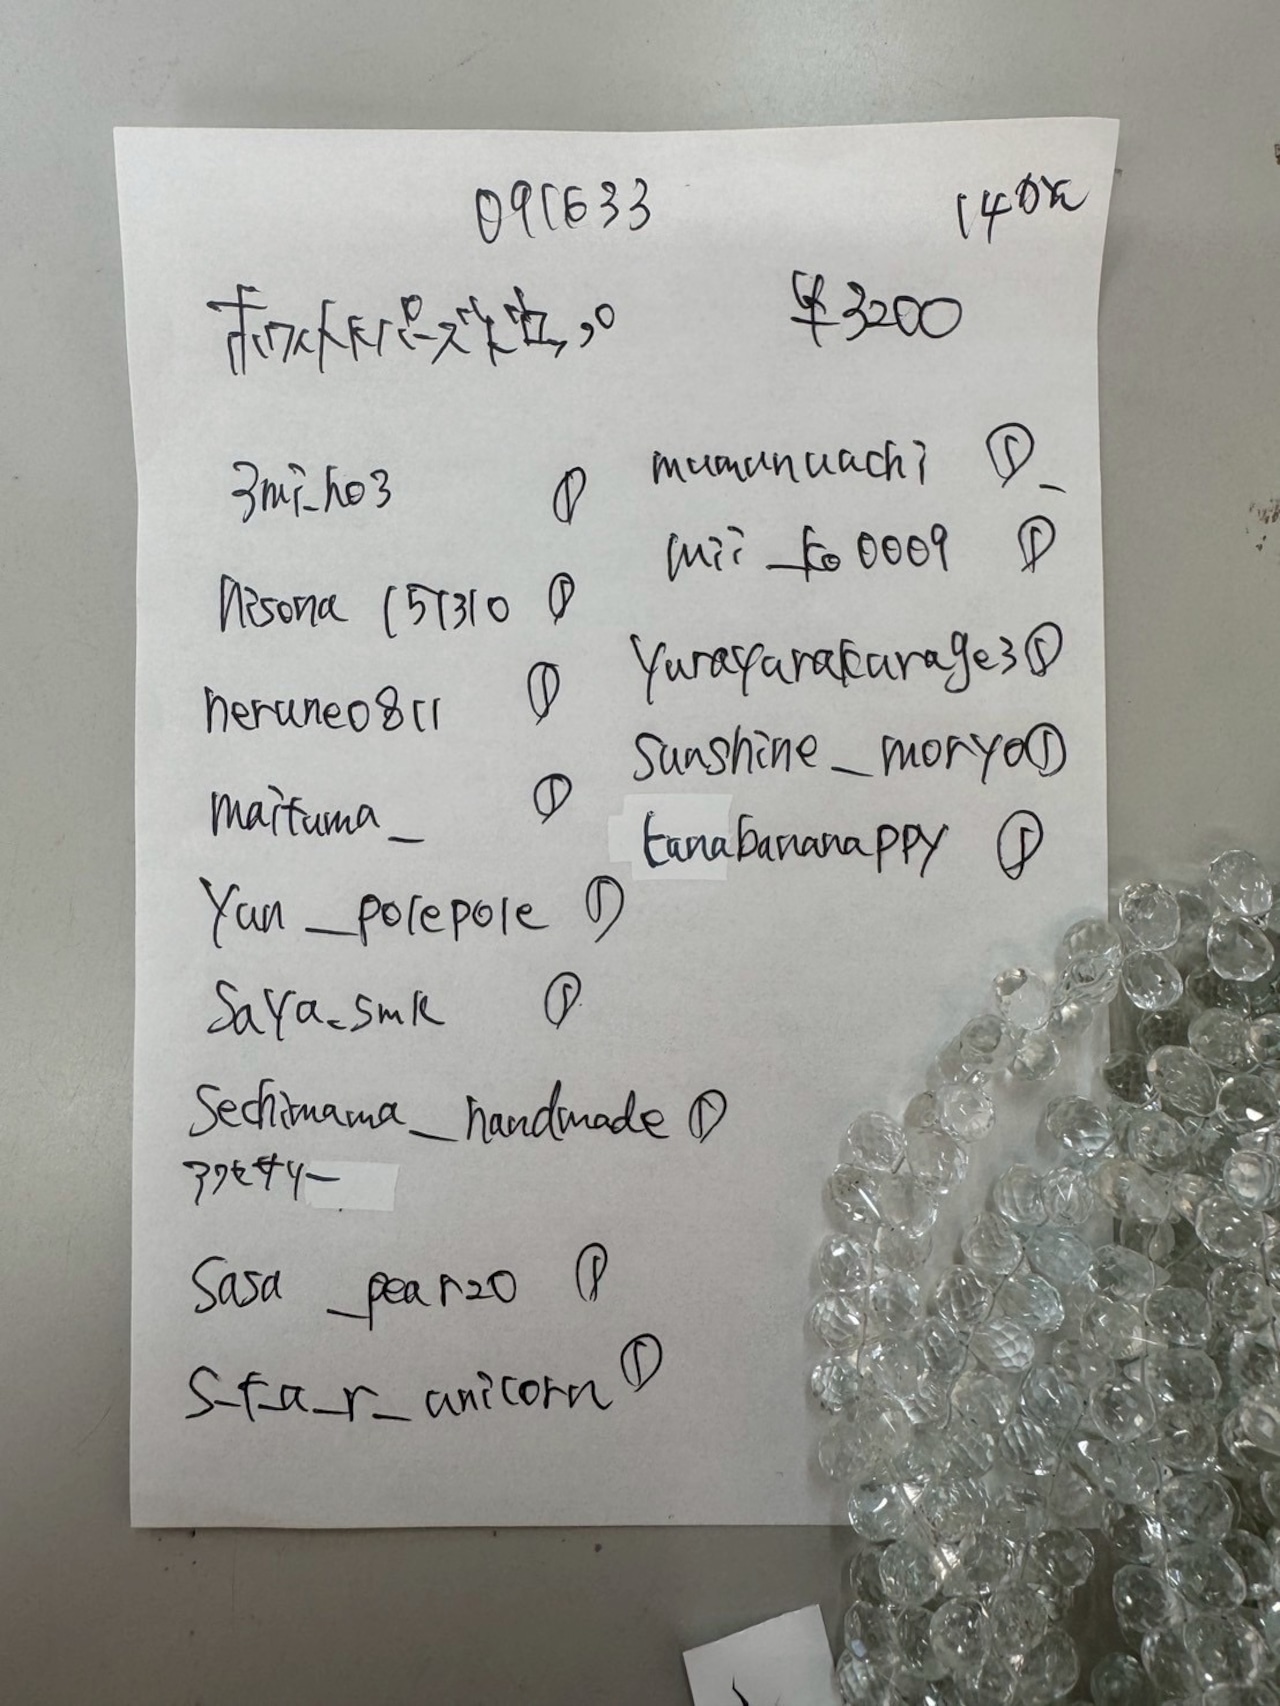 091633
140元
ホワイトトパーズ
単3200
3mi_ho3 ①
hisona 151310 ①
nerune0811 ①
maituma_ ①
Yun_polepole ①
Saya_smk ①
Sechimama_handmade ①
アクセサリー
Sasa_pear20 ①
S_t_a_r_unicorn ①
mumunuachi ①_
mii_ko0009 ①
Yurayurakurage3 ①
Sunshine_moryo ①
tanabananappy ①